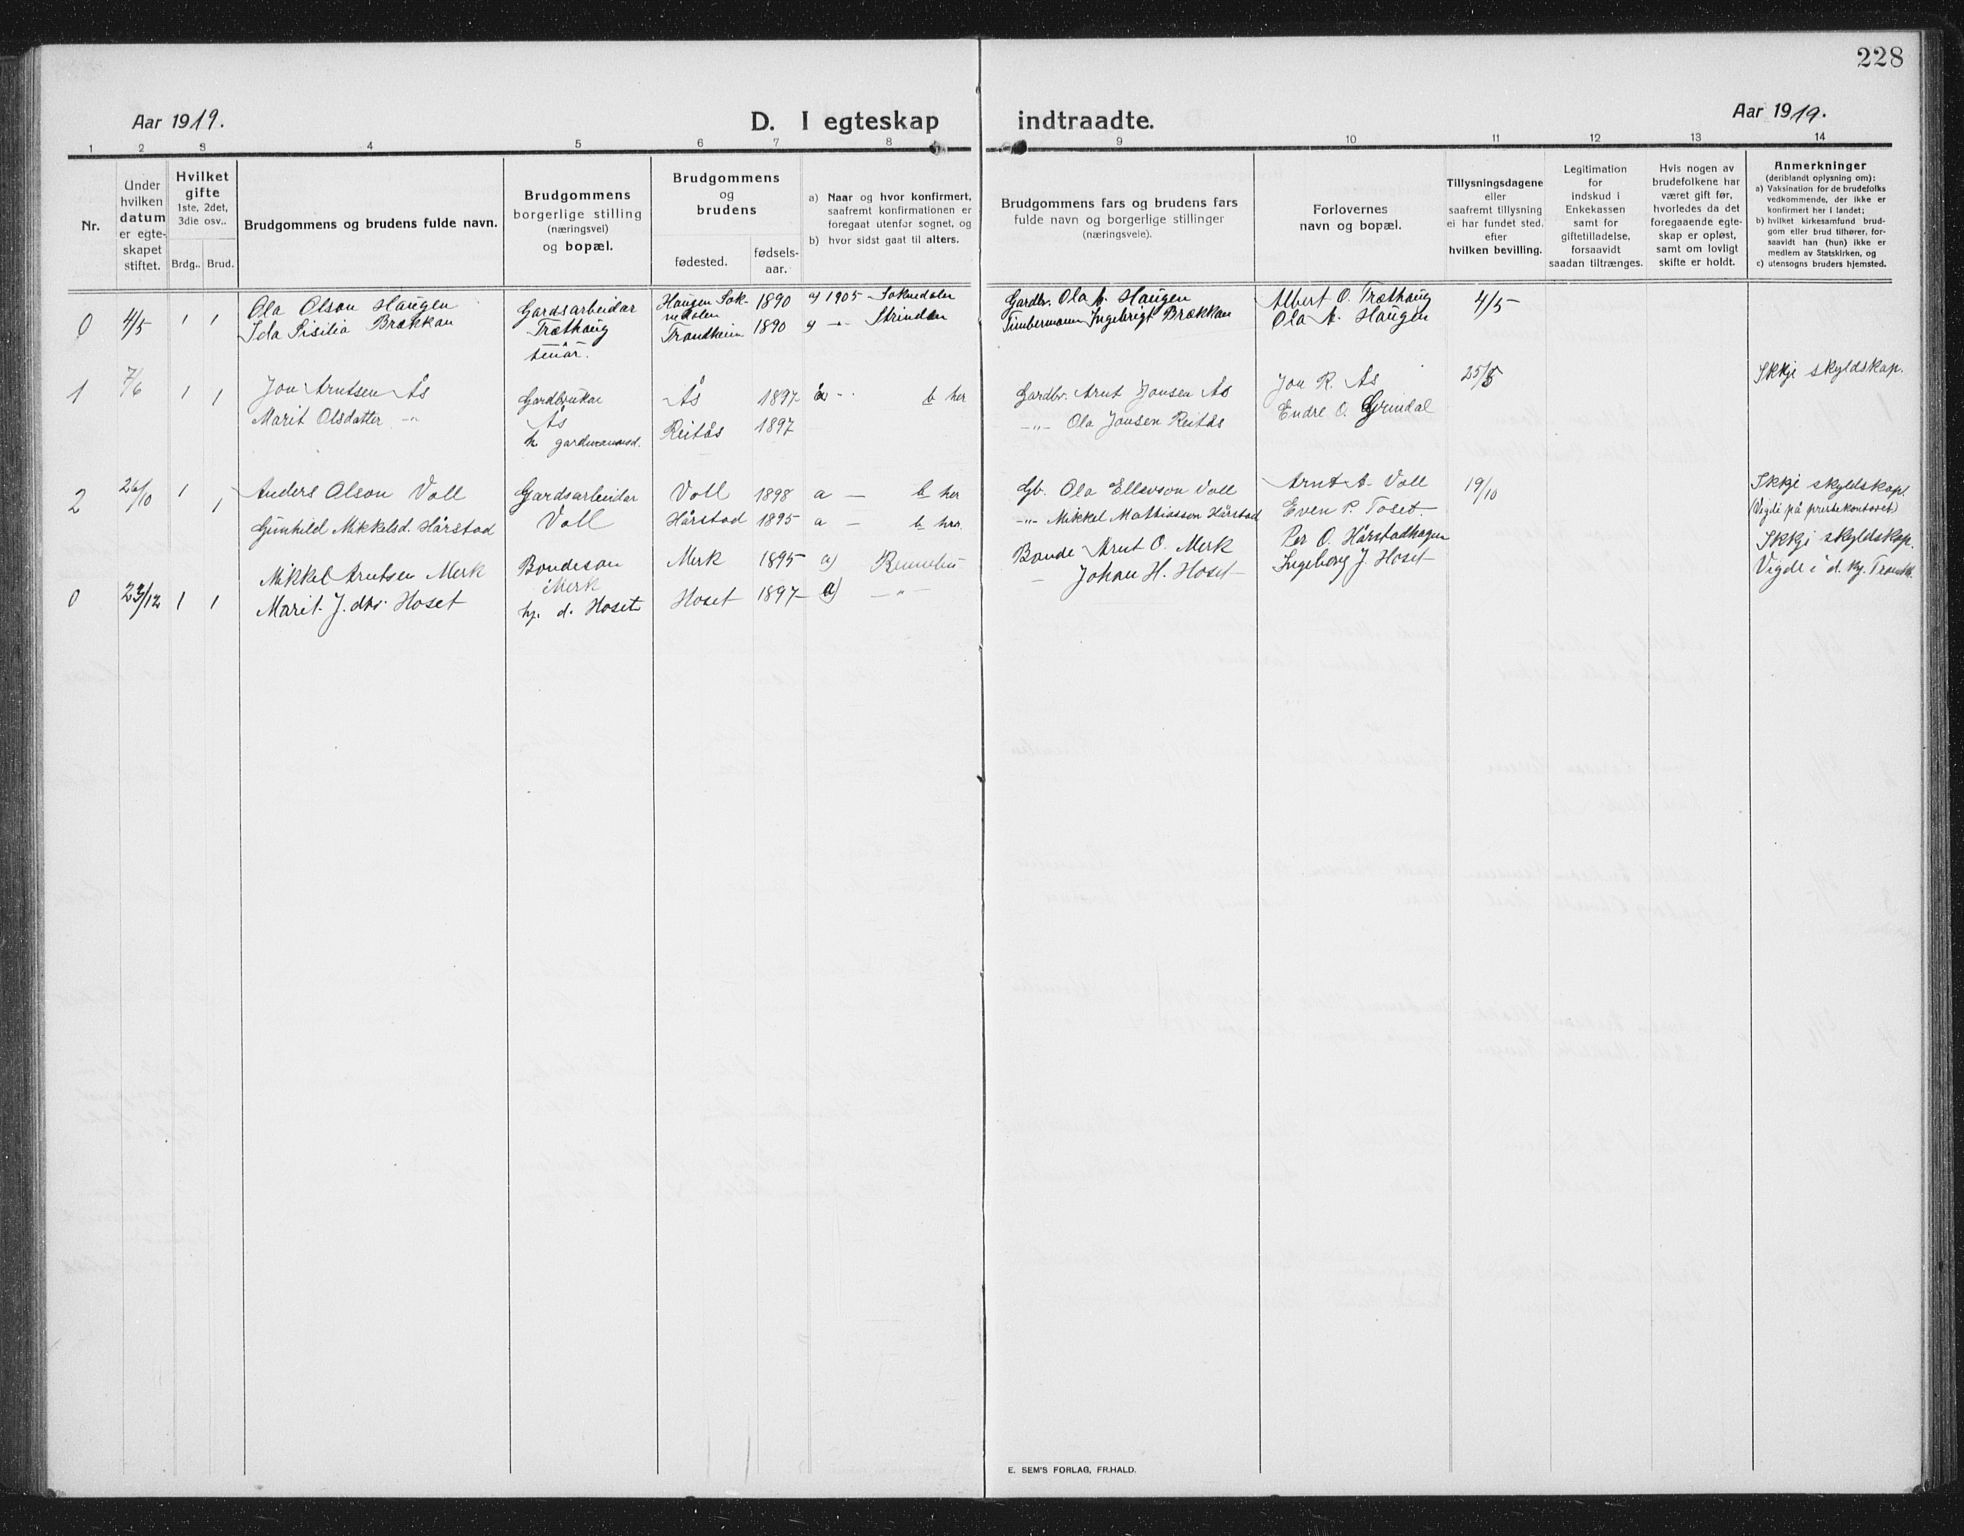 228
Aar 1919.
D. I egteskap indtraadte.
Aar 1919.
1 2 3 4 5 6 7 8 9 10 11 12 13 14
Nr.
Under hvilken datum er egteskapet stiftet.
Hvilket gifte
1ste, 2det, 3die osv..
Brdg.. Brud.
Brudgommens og brudens fulde navn.
Brudgommens
borgerlige stilling
(næringsvei)
og bopæl.
Brudgommens
og
brudens
fødested.
fødsels-
aar.
a) Naar og hvor konfirmert,
saafremt konfirmationen er
foregaat utenfor sognet, og
b) hvor sidst gaat til alters.
Brudgommens fars og brudens fars
fulde navn og borgerlige stillinger
(næringsveie).
Forlovernes
navn og bopæl.
Tillysningsdagene
eller
saafremt tillysning
ei har fundet sted,
efter
hvilken bevilling.
Legitimation
for
indskud i
Enkekassen
samt for
giftetilladelse,
forsaavidt
saadan tiltrænges.
Hvis nogen av
brudefolkene har
været gift før,
hvorledes da det
foregaaende egte-
skap er opløst,
samt om lovligt
skifte er holdt.
Anmerkninger
(deriblandt oplysning om):
a) Vaksination for de brudefolks
vedkommende, der ikke er
konfirmert her i landet;
b) hvilket kirkesamfund brud-
gom eller brud tilhører, for-
saavidt han (hun) ikke er
medlem av Statskirken, og
c) utensogns bruders hjemsted.
0 4/5 1 1
Ola Olson Haugen
Ida Sisilia Brækkan
Gardsarbeidar
Træthaug
Haugen Sok-
nedalen
Trondheim
1890
1890
a) 1905 Soknedalen
a) – Strinden
Gardbr. Ola A. Haugen
Timbermann Ingebrigt Brækkan
Albert O. Træthaug
Ola A. Haugen
4/5
1 7/6 1 1
Jon Arntsen Ås
Marit Olsdatter –"–
Gardbrukar
Ås
h. gardmannsd.
Ås 1897
Reitås 1897
b her
Gardbr. Arnt Jonsen Ås
–"– Ola Jonsen Reitås
Jon R. Ås
Endre O. Grindal
25/5
Ikkje skyldskap.
2 26/10 1 1
Anders Olson Voll
Gunhild Mikkelsd. Hårstad
Gardsarbeidar
Voll
Voll 1898 a – b her
Hårstad 1895 a – b her
Gb. Ola Ellevson Voll
–"– Mikkel Mathiasson Hårstad
Arnt A. Voll
Even P. Toset
19/10
Ikkje skyldskap.
(Vigdi på prestekontoret)
0 23/12 1 1
Mikkel Arntsen Merk
Marit J. dtr. Hoset
Bondeson
Merk
hj. d. Hoset
Merk 1895 a) Rennebu
Hoset 1897 a) –"–
Bonde Arnt O. Merk
– Johan H. Hoset
Per O. Hårstadhagen
Ingeborg J. Hoset
Ikkje skyldskap.
Vigde i d. by. Trondh.
E. SEM'S FORLAG, FR.HALD.